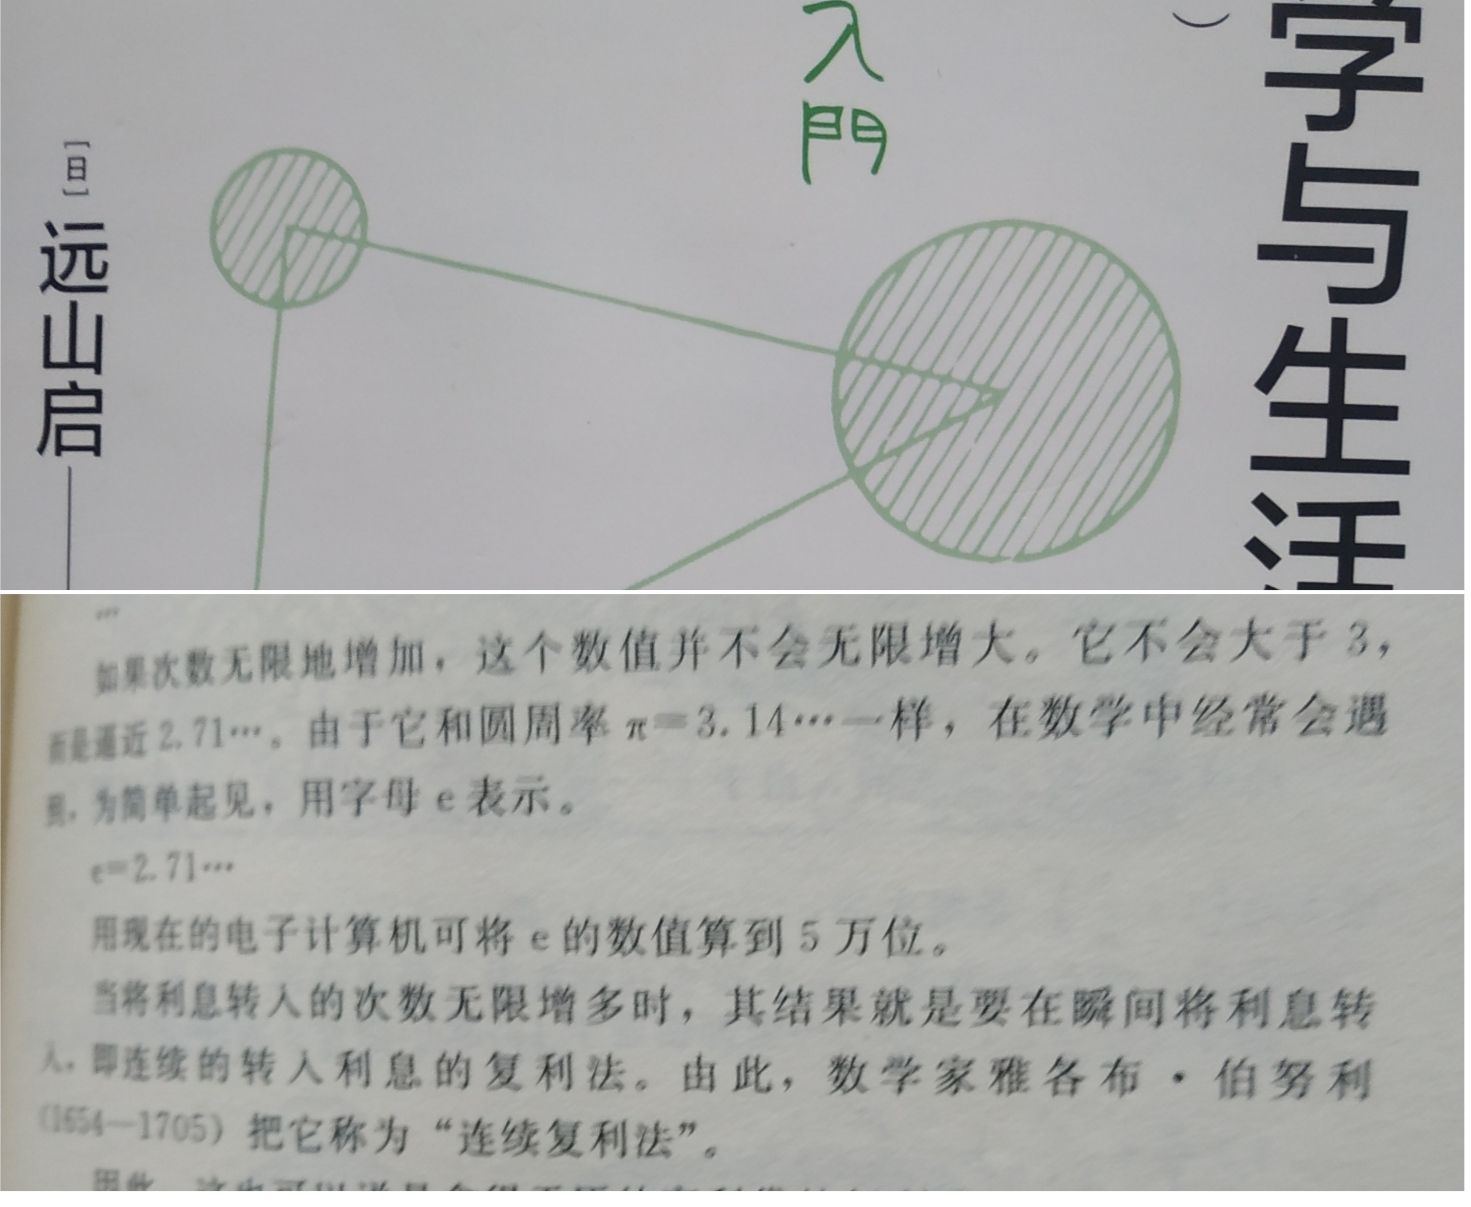 入門
学与生活
[日]
远山启
如果次数无限地增加，这个数值并不会无限增大。它不会大于 3，
而是逼近 2.71…。由于它和圆周率 π=3.14…一样，在数学中经常会遇
到，为简单起见，用字母 e 表示。
e=2.71…
用现在的电子计算机可将 e 的数值算到 5 万位。
当将利息转入的次数无限增多时，其结果就是要在瞬间将利息转
入，即连续的转入利息的复利法。由此，数学家雅各布·伯努利
(1654—1705) 把它称为“连续复利法”。